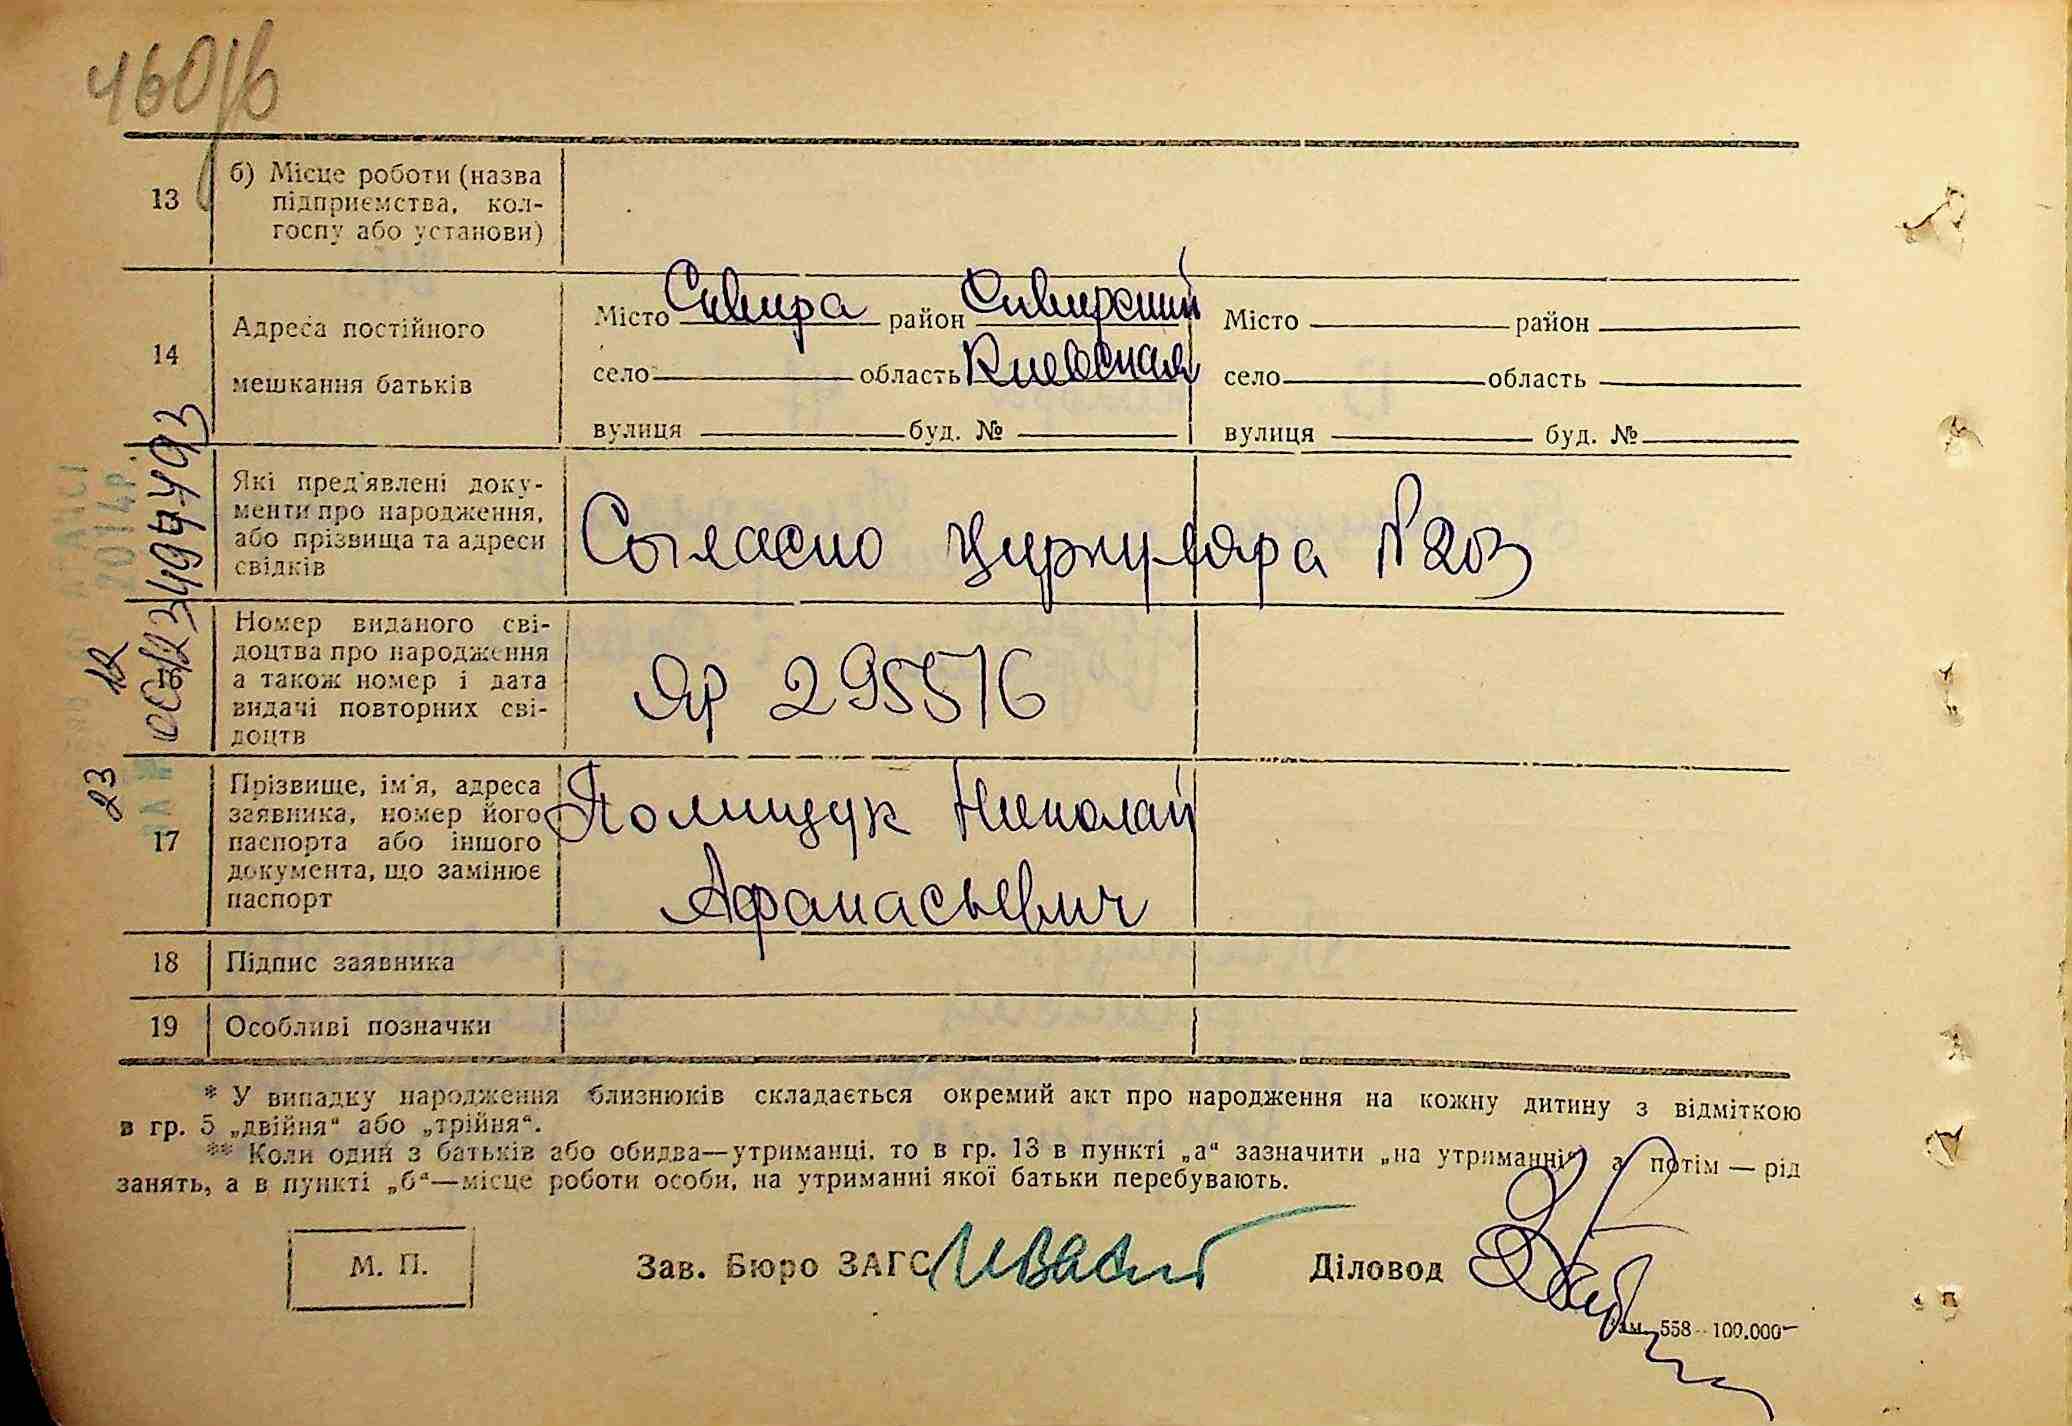 460/в
13
б) Місце роботи (назва
підприємства, кол-
госпу або установи)
14
Адреса постійного
мешкання батьків
Місто Сквира район Сквирский
село область Киевская
вулиця буд. №
Місто район
село область
вулиця буд. №
Які пред'явлені доку-
менти про народження,
або прізвища та адреси
свідків
Согласно циркуляра №203
16
Номер виданого сві-
доцтва про народження
а також номер і дата
видачі повторних сві-
доцтв
ЯР 295516
17
Прізвище, ім'я, адреса
заявника, номер його
паспорта або іншого
документа, що замінює
паспорт
Полищук Николай
Афанасьевич
18
Підпис заявника
19
Особливі позначки
23 12
* У випадку народження близнюків складається окремий акт про народження на кожну дитину з відміткою
в гр. 5 „двійня“ або „трійня“.
** Коли один з батьків або обидва—утриманці, то в гр. 13 в пункті „а“ зазначити „на утриманні“ а потім — рід
занять, а в пункті „б“—місце роботи особи, на утриманні якої батьки перебувають.
М. П.
Зав. Бюро ЗАГС
Діловод
558--100.000